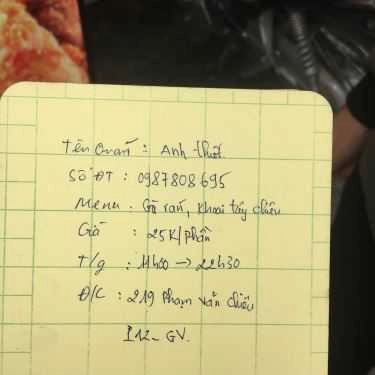 Tên Quán : Anh Thiết
Số ĐT : 0987808695
Menu : Gà rán, khoai tây chiên
Giá : 25K/phần
T/g : 11h00 → 22h30
Đ/C : 219 Phạm Văn Chiêu
P12 - GV.